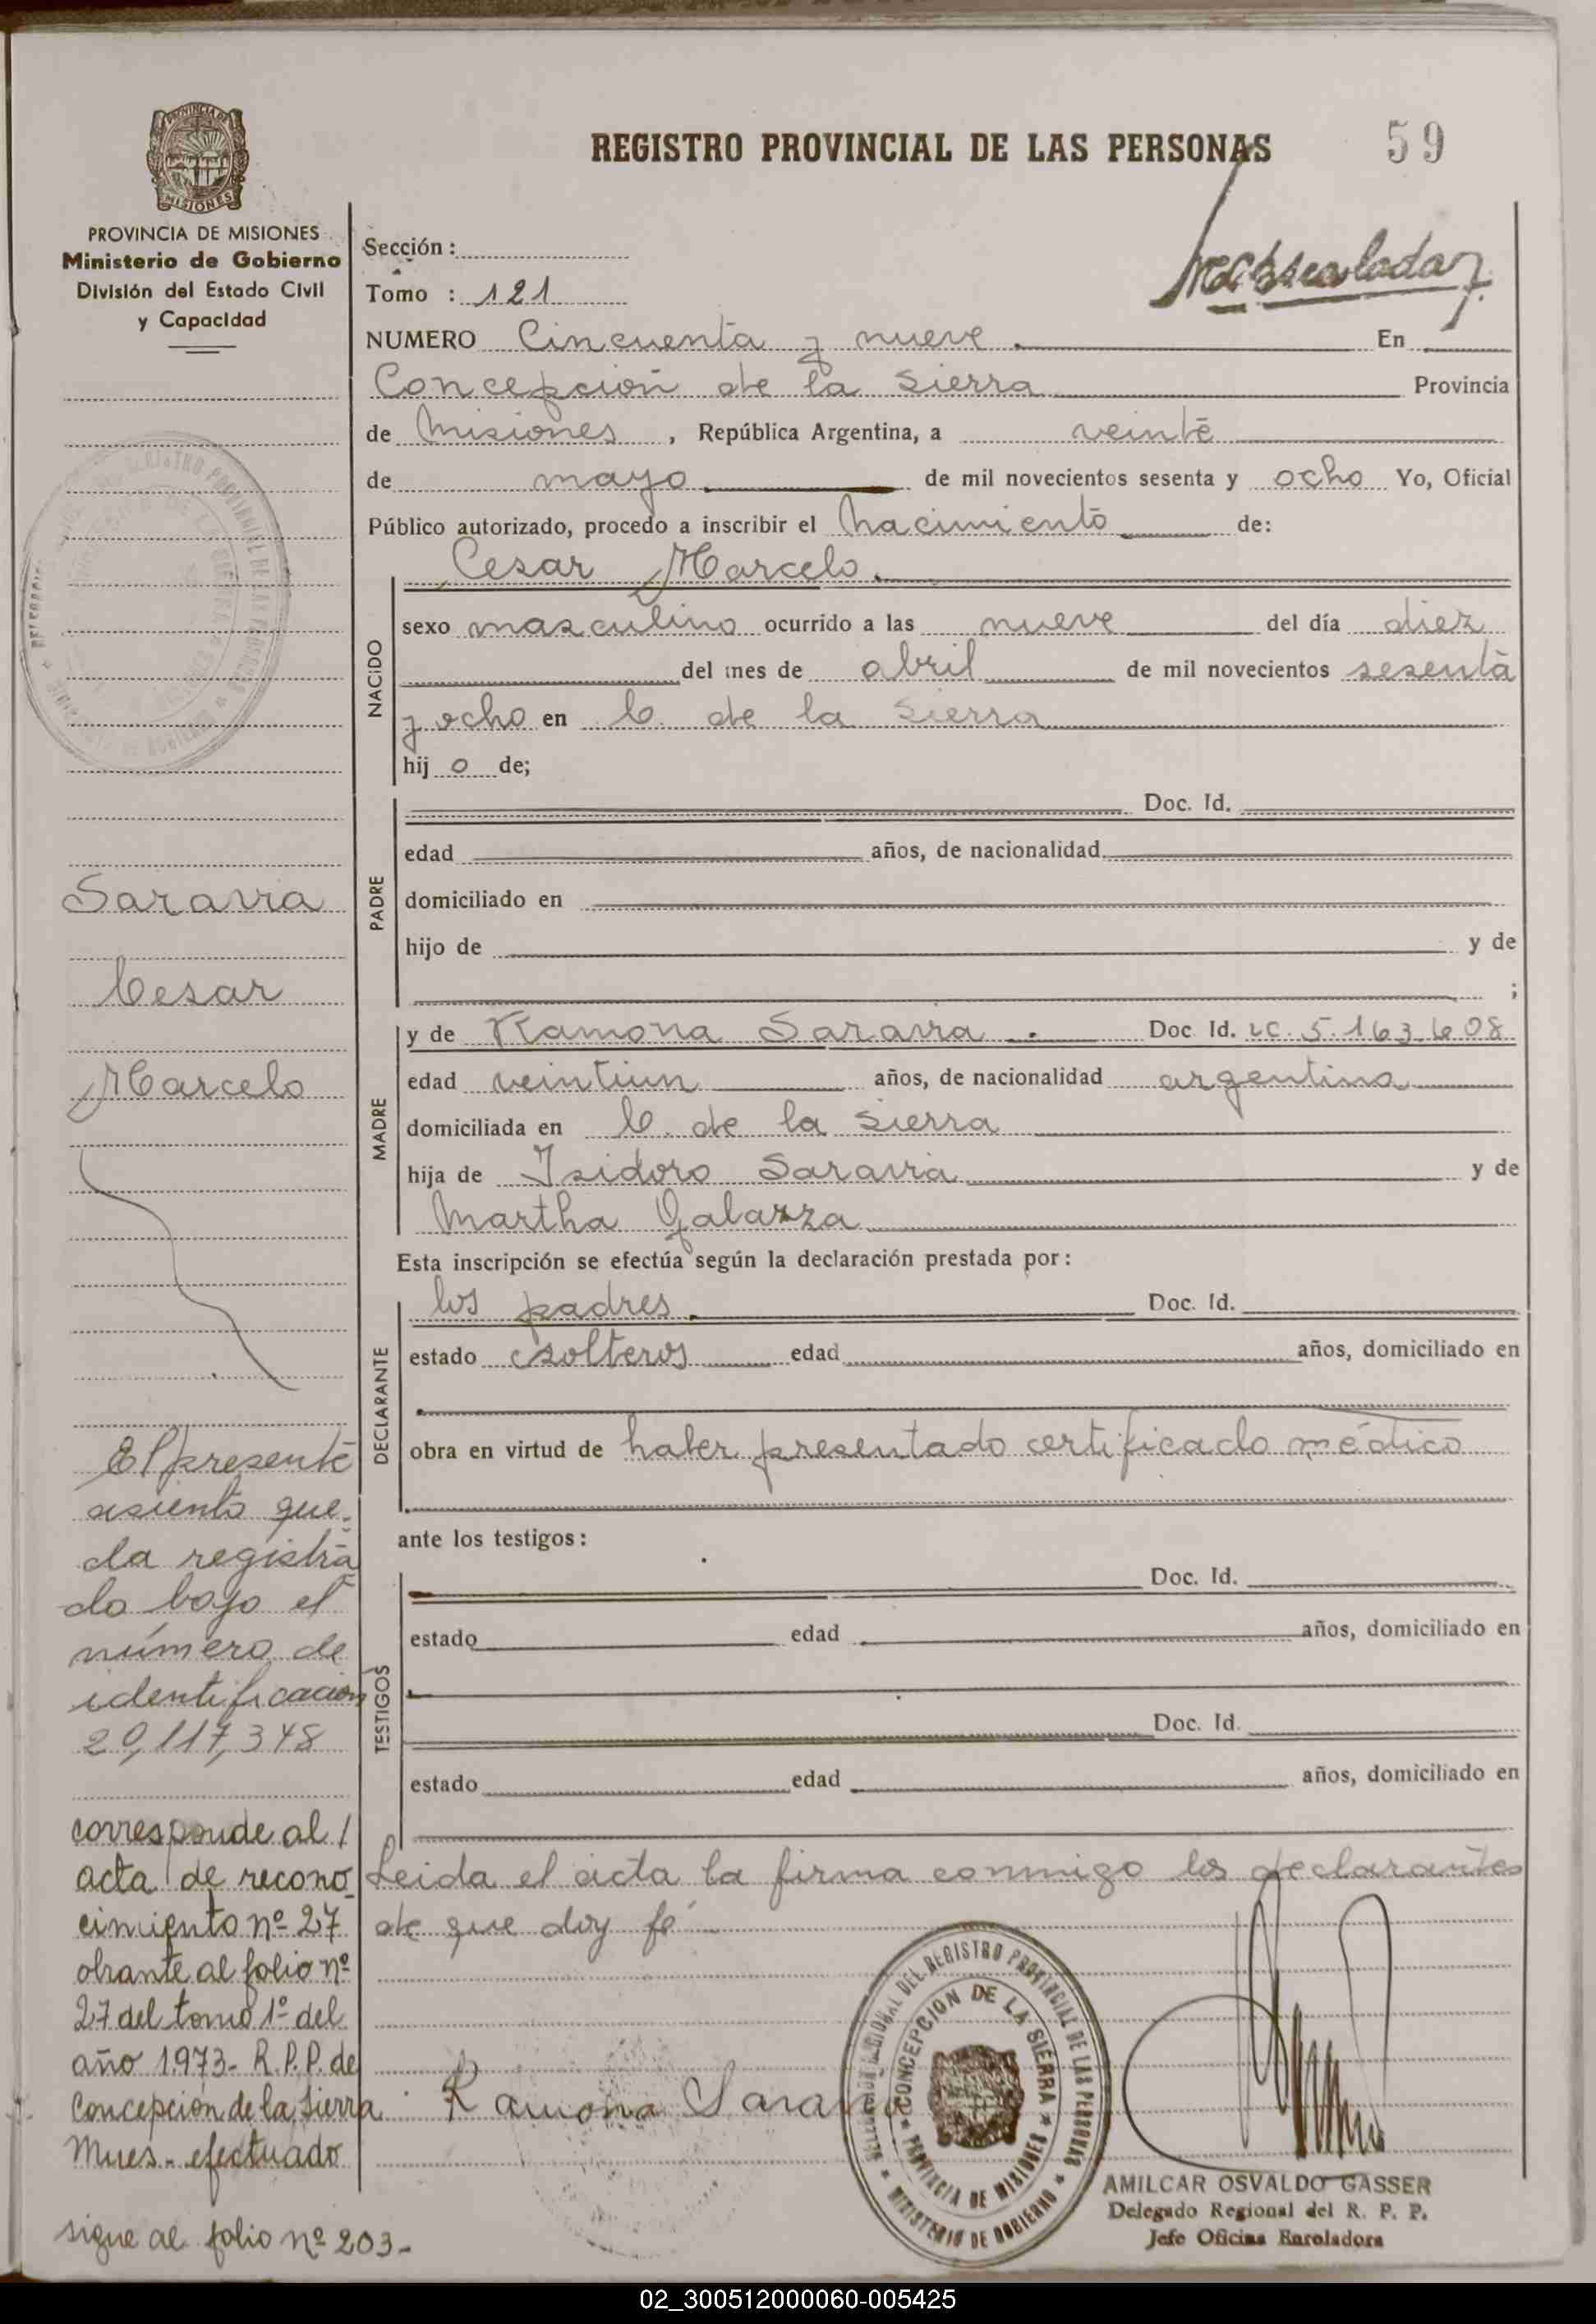 REGISTRO PROVINCIAL DE LAS PERSONAS
59
PROVINCIA DE MISIONES
MISIONES
PROVINCIA DE MISIONES
Ministerio de Gobierno
División del Estado Civil
y Capacidad
Sección :
Tomo : 121
NUMERO Cincuenta y nueve. En
Concepción de la Sierra Provincia
de Misiones, República Argentina, a veinte
de mayo de mil novecientos sesenta y ocho Yo, Oficial
Público autorizado, procedo a inscribir el nacimiento de:
Cesar Marcelo.
NACIDO
sexo masculino ocurrido a las nueve del día diez
del mes de abril de mil novecientos sesenta
y ocho en C. de la Sierra
hij o de;
PADRE
Doc. Id.
edad años, de nacionalidad
domiciliado en
hijo de y de
;
MADRE
y de Ramona Saravia . Doc Id. LC. 5.163.608
edad veintiun años, de nacionalidad argentina
domiciliada en C. de la Sierra
hija de Isidoro Saravia y de
Martha Galarza
Esta inscripción se efectúa según la declaración prestada por:
DECLARANTE
los padres. Doc. Id.
estado solteros edad años, domiciliado en
obra en virtud de haber presentado certificado médico
ante los testigos:
TESTIGOS
Doc. Id.
estado edad años, domiciliado en
Doc. Id.
estado edad años, domiciliado en
Leida el acta la firma conmigo los declarantes
de que doy fé
Ramona Saravia
DEL REGISTRO PROVINCIAL DE LAS PERSONAS
MINISTERIO DE GOBIERNO
CONCEPCION DE LA SIERRA
PROVINCIA DE MISIONES
AMILCAR OSVALDO GASSER
Delegado Regional del R. P. P.
Jefe Oficina Enroladora
Saravia
Cesar
Marcelo
El presente
asiento que-
da registra
do bajo el
número de
identificacion
20,117,348
corresponde al /
acta de recono_
cimiento nº 27
obrante al folio nº
27 del tomo 1º del
año 1973- R.P.P. de
Concepción de la Sierra
Mnes.- efectuado
sigue al folio nº 203-
02_300512000060-005425